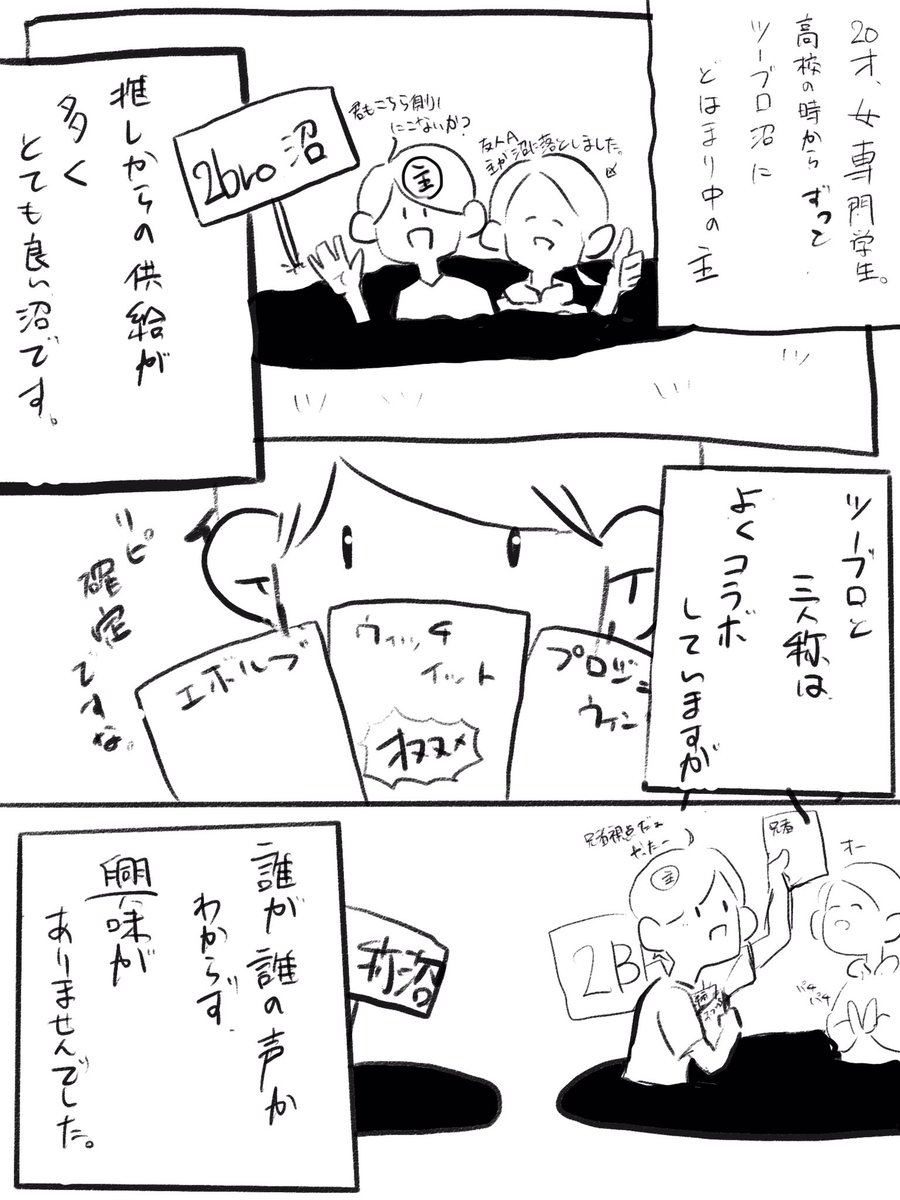 20才、女専門学生。
高校の時からずっと
ツーブロ沼に
どはまり中の主
友人A
主が沼に落としました。
君もこちら側に
こないか?
主
2bro沼
推しからの供給が
多く
とても良い沼です。
ツーブロと
三人称は
よくコラボ
していますが
プロジェ
ウィン
ウィッチ
イット
オススメ
エボルブ
リピ
確定ですな。
オー
兄者
兄者視点だぁ
やったー
主
パチ
パチ
2B
称沼
誰が誰の声か
わからず、
興味が
ありませんでした。